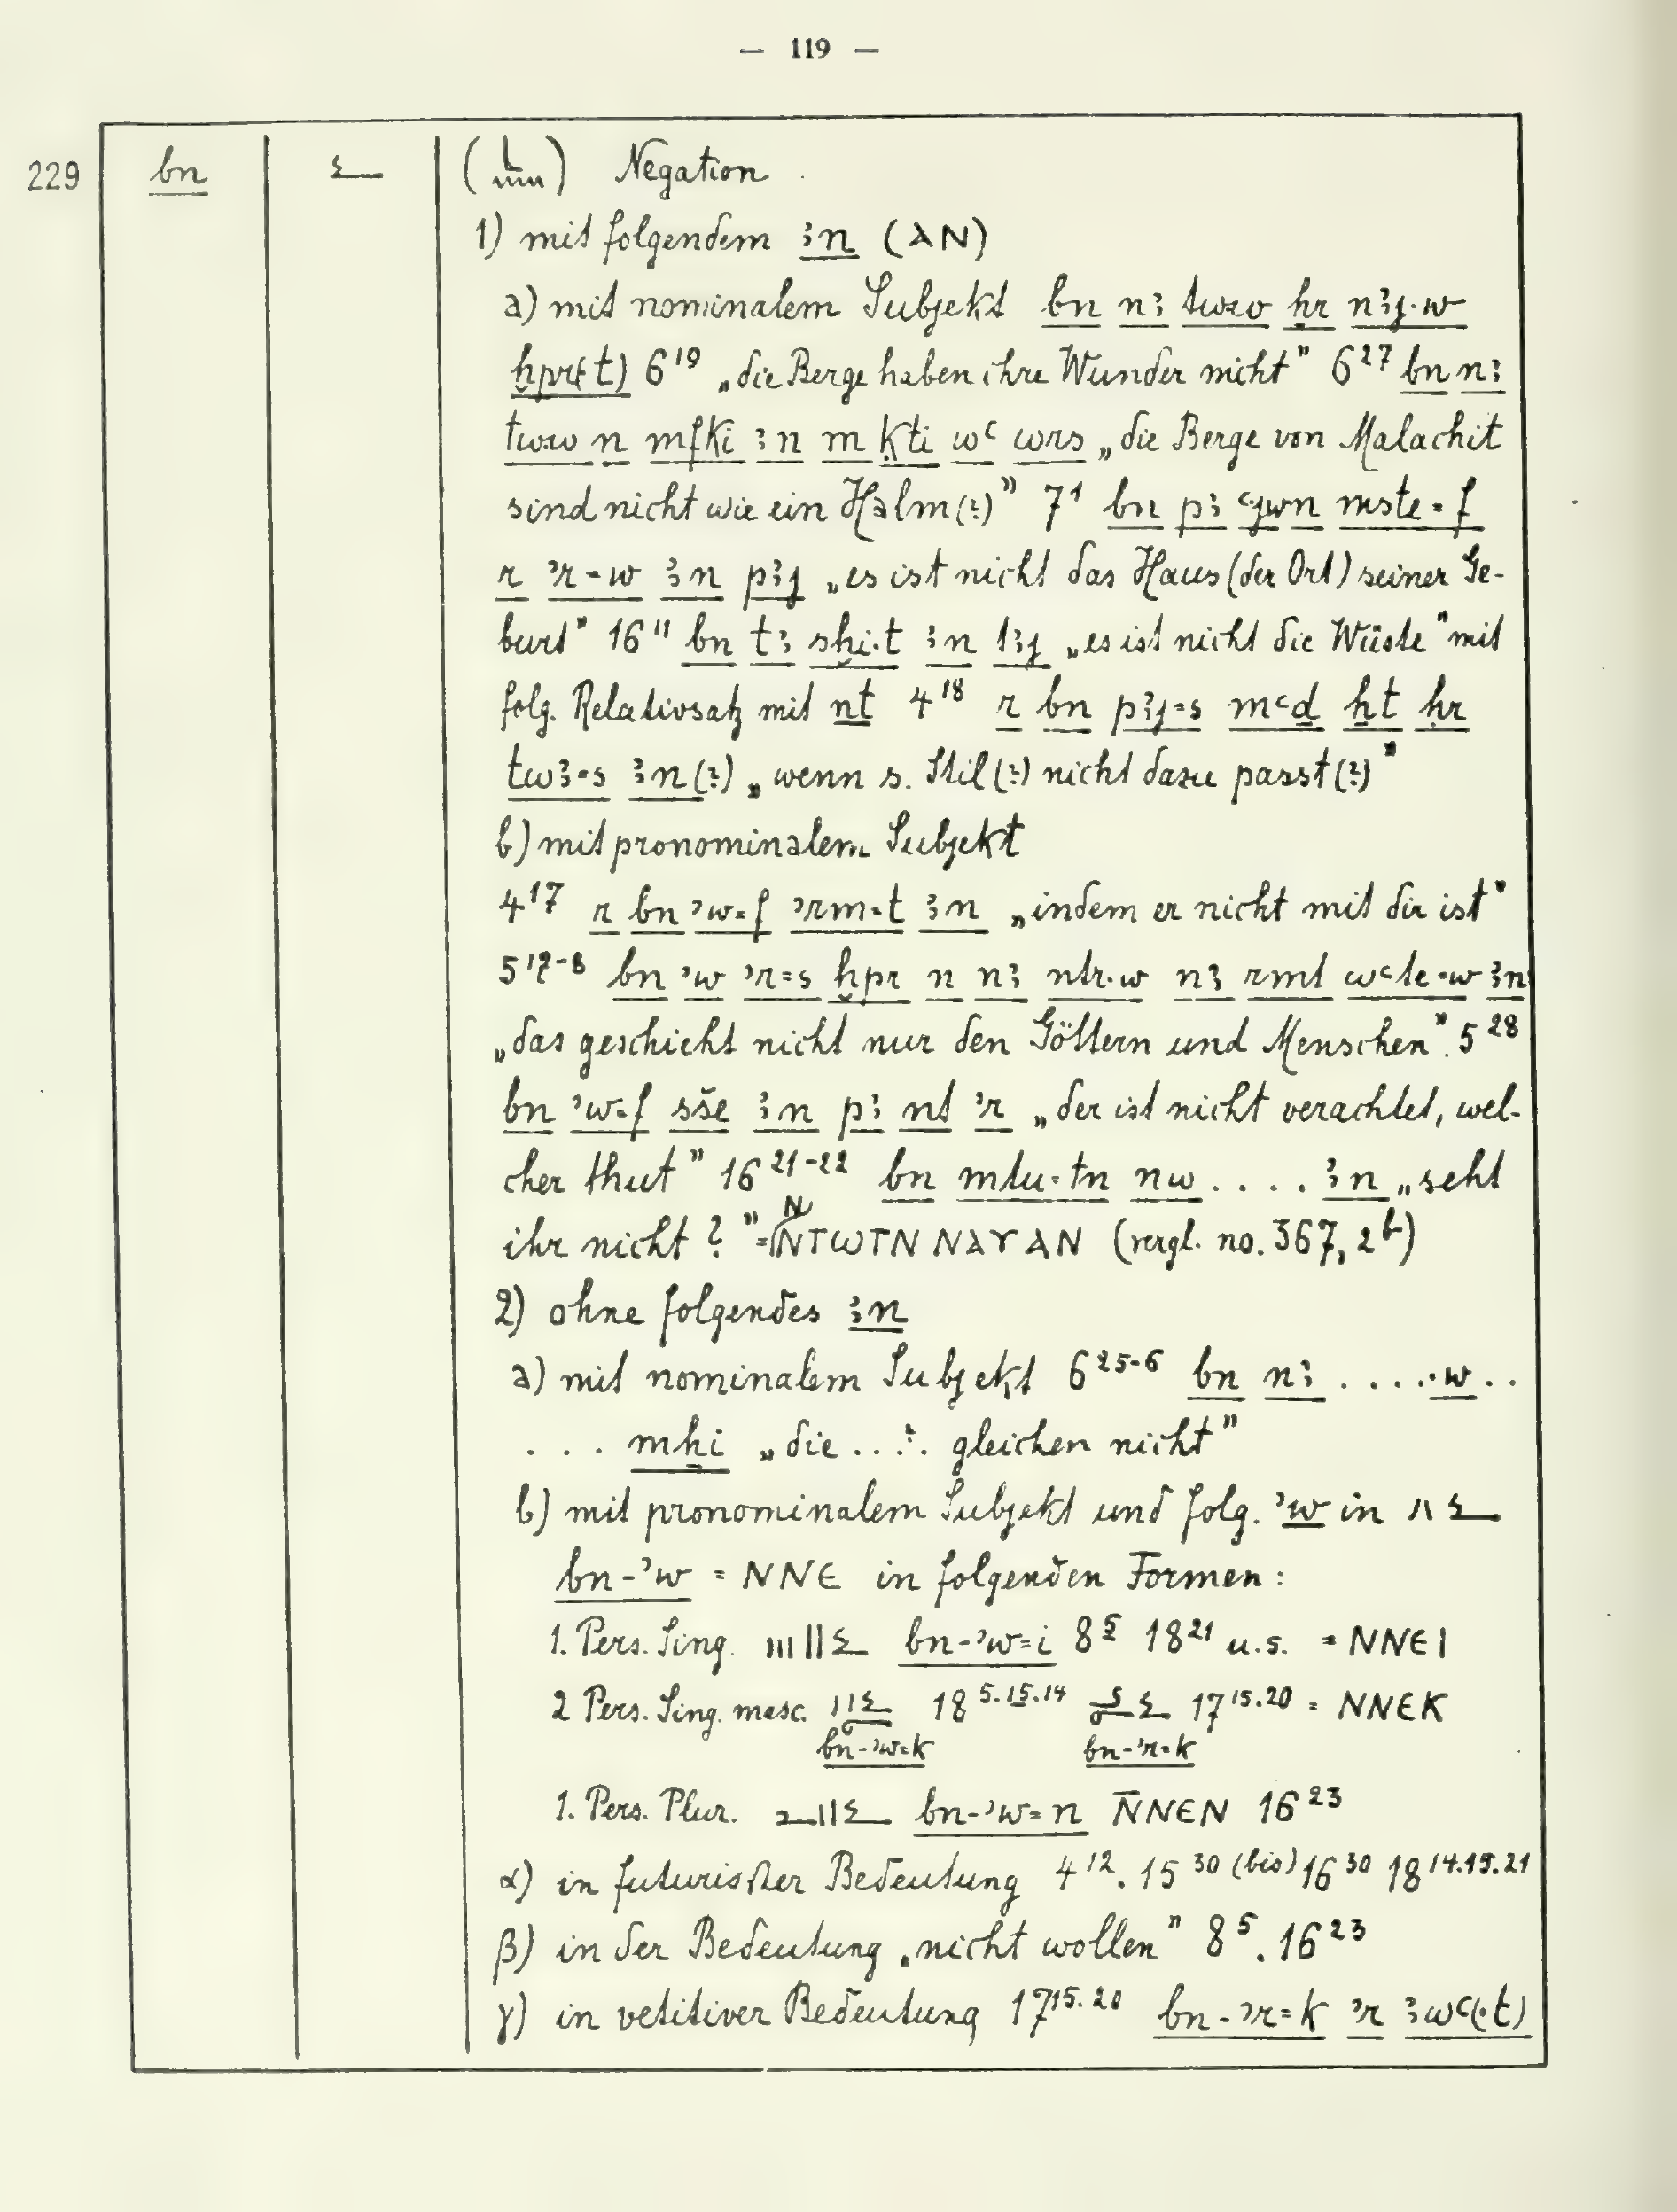 — 119 —
229 bn ( ) Negation
1) mit folgendem ꜣn (ⲀⲚ)
a) mit nominalem Subjekt bn nꜣ tww ḥr nꜣj·w
ḫpr(t) 6¹⁹ „die Berge haben ihre Wunder nicht" 6²⁷ bn nꜣ
tww n mfki ꜣn m ḳti wꜥ wrs „die Berge von Malachit
sind nicht wie ein Halm(?)" 7¹ bn pꜣ ꜥjwn mste=f
r ʾr=w ꜣn pꜣj „es ist nicht das Haus (der Ort) seiner Ge-
burt" 16¹¹ bn tꜣ sḫi·t ꜣn tꜣj „es ist nicht die Wüste" mit
folg. Relativsatz mit nt 4¹⁸ r bn pꜣj=s mꜥḏ ẖt ḥr
twꜣ=s ꜣn(?) „wenn s. Stil(?) nicht dazu passt(?)"
b) mit pronominalem Subjekt
4¹⁷ r bn ʾw=f ʾrm=t ꜣn „indem er nicht mit dir ist"
5¹⁷⁻⁸ bn ʾw ʾr=s ḫpr n nꜣ ntr·w nꜣ rmt wꜥte=w ꜣn
„das geschieht nicht nur den Göttern und Menschen". 5²⁸
bn ʾw=f sše ꜣn pꜣ nt ʾr „der ist nicht verachtet, wel-
cher thut" 16²¹⁻²² bn mtu=tn nw .... ꜣn „seht
ihr nicht?" = ⲚⲚⲦⲰⲦⲚ ⲚⲀⲨ ⲀⲚ (vergl. no. 367, 2b)
2) ohne folgendes ꜣn
a) mit nominalem Subjekt 6²⁵⁻⁶ bn nꜣ .....w..
... mḥi „die ..?. gleichen nicht"
b) mit pronominalem Subjekt und folg. ʾw in
bn-ʾw = ⲚⲚⲈ in folgenden Formen:
1. Pers. Sing. bn-ʾw=i 8⁵ 18²¹ u.s. = ⲚⲚⲈⲒ
2 Pers. Sing. masc. 18⁵·¹⁵·¹⁴ 17¹⁵·²⁰ = ⲚⲚⲈⲔ
bn-ʾw=k bn-ʾr=k
1. Pers. Plur. bn-ʾw=n Ⲛ̄ⲚⲈⲚ 16²³
α) in futurischer Bedeutung 4¹². 15³⁰ ⁽ᵇⁱˢ⁾ 16³⁰ 18¹⁴·¹⁵·²¹
β) in der Bedeutung „nicht wollen" 8⁵. 16²³
γ) in vetitiver Bedeutung 17¹⁵·²⁰ bn-ʾr=k ʾr ꜣwꜥ(·t)